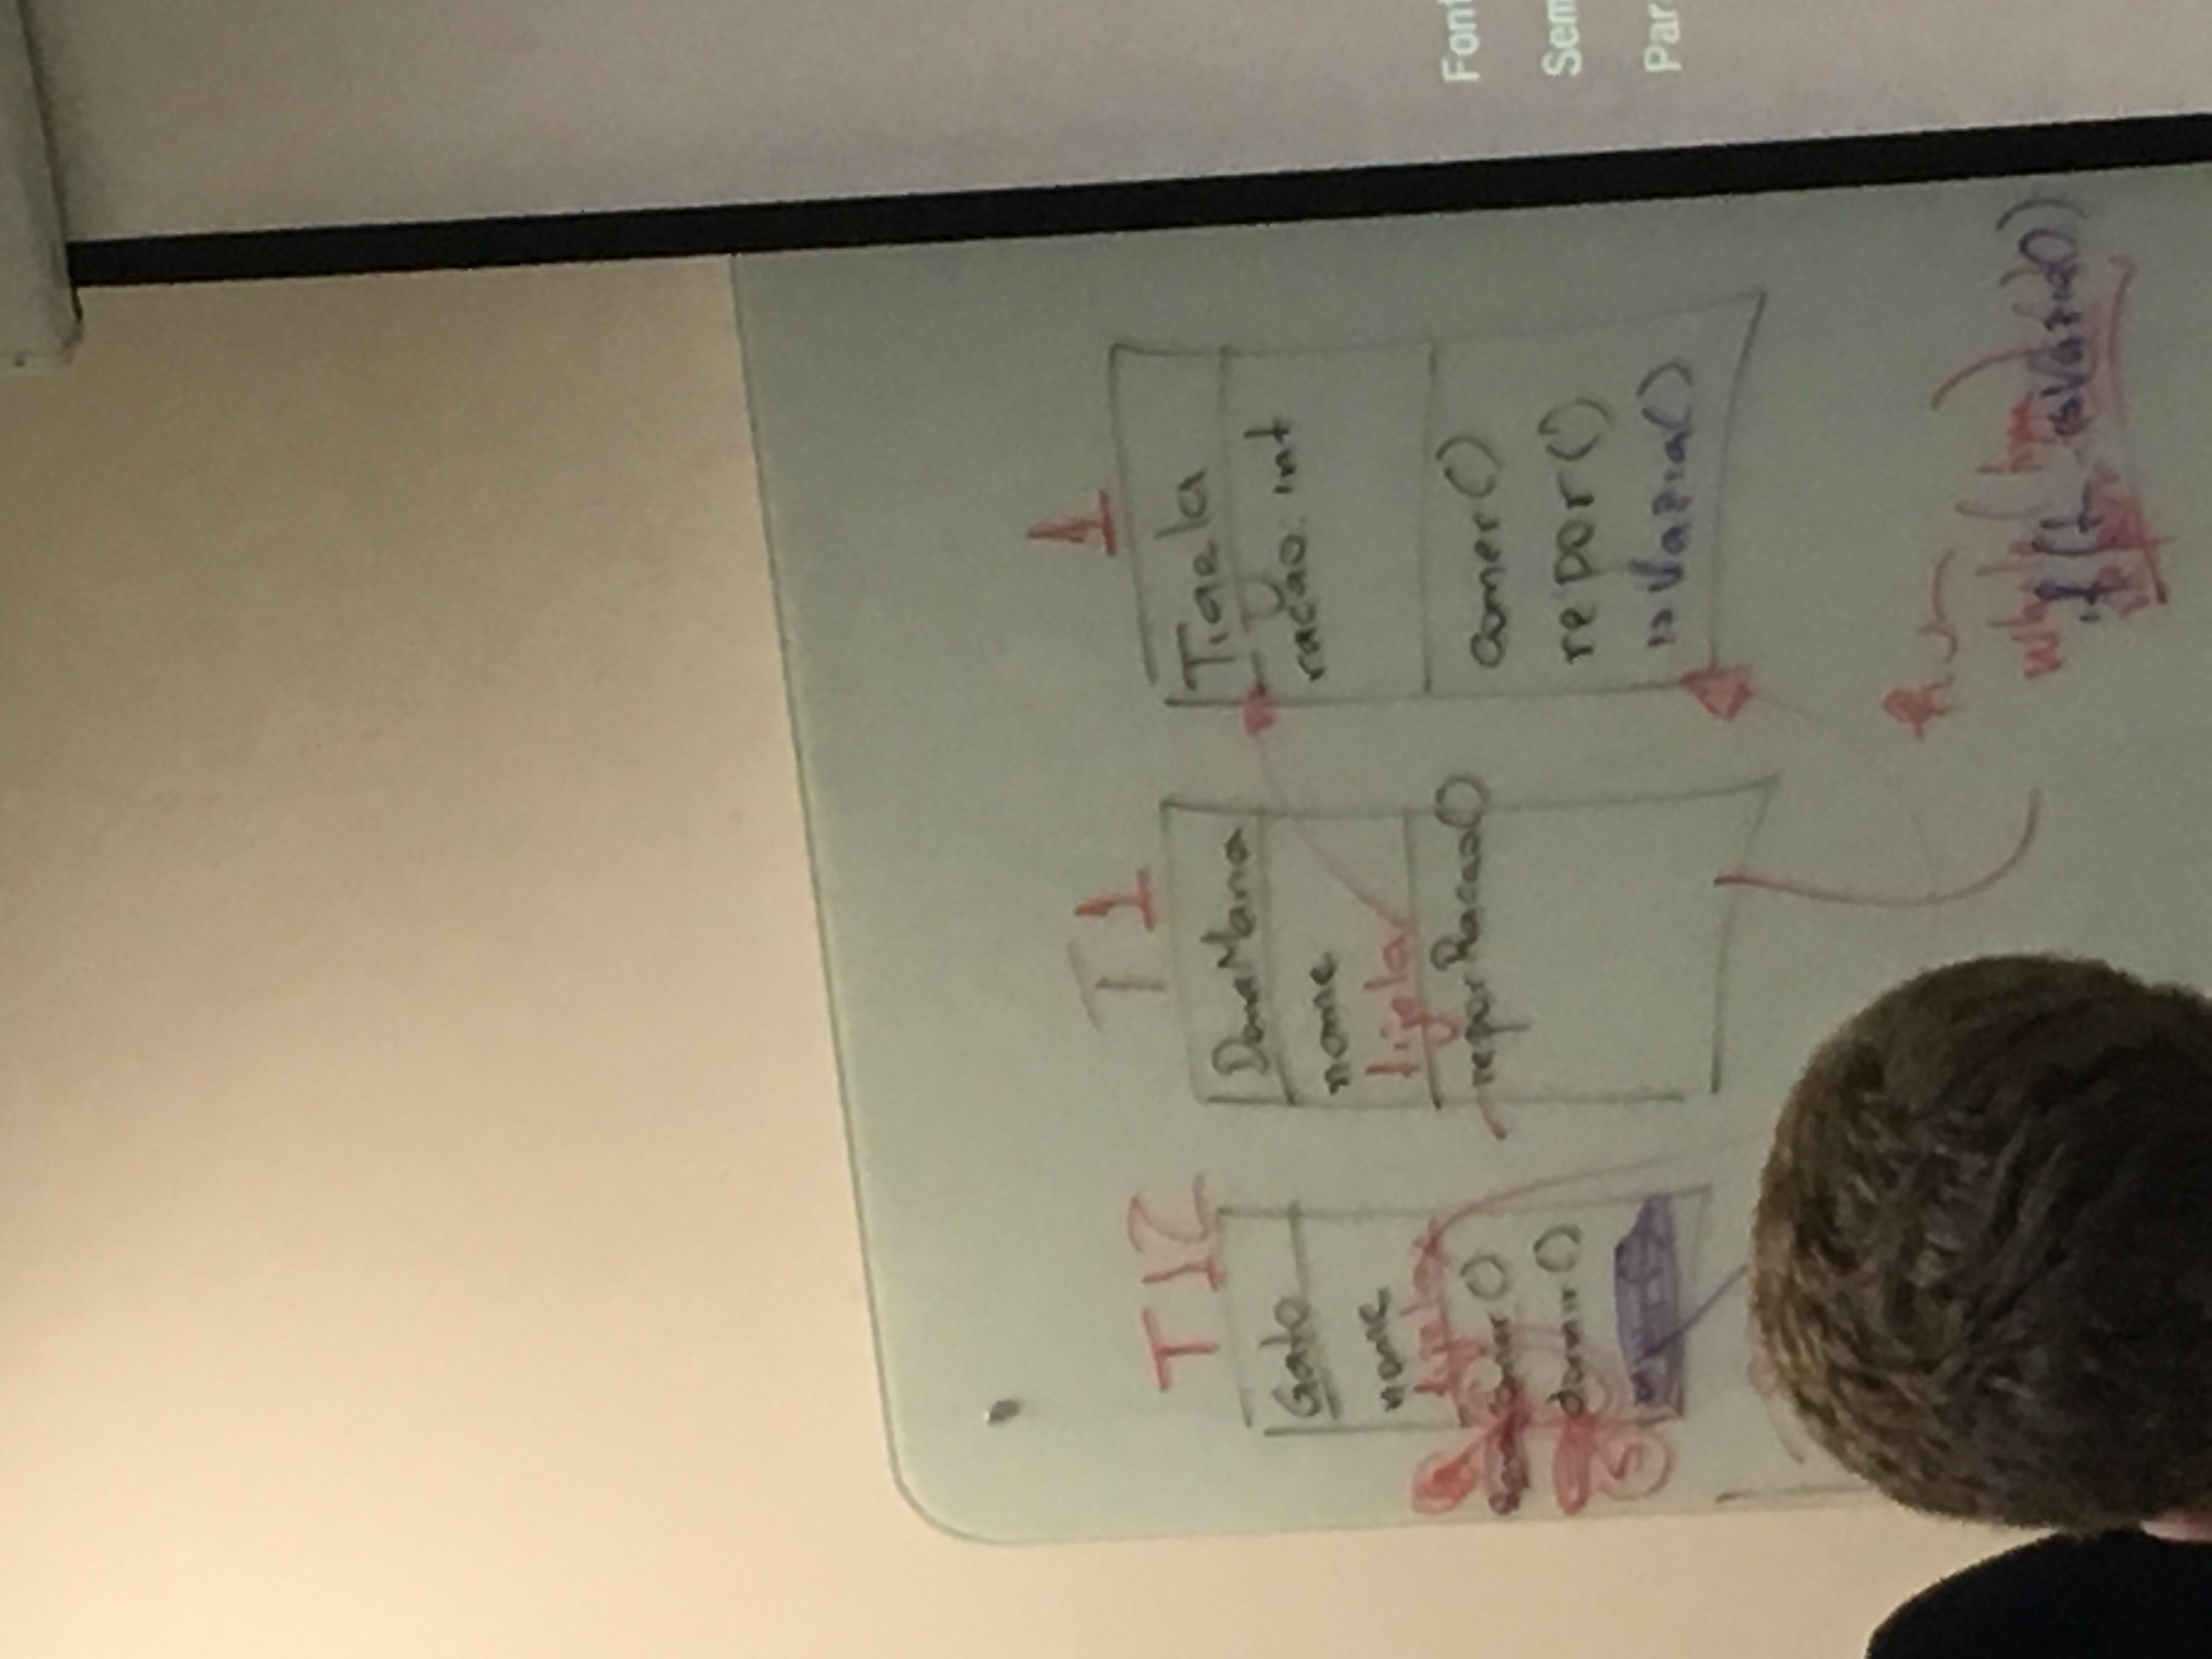 T12
Gato
nome
tijela
comer()
dormir()
T1
DonaMaria
nome
tijela
reporRacao()
1
Tigela
racao: int
comer()
repor()
isVazia()
Run
while(true)
if(t isVazia())
Font
Sem
Par